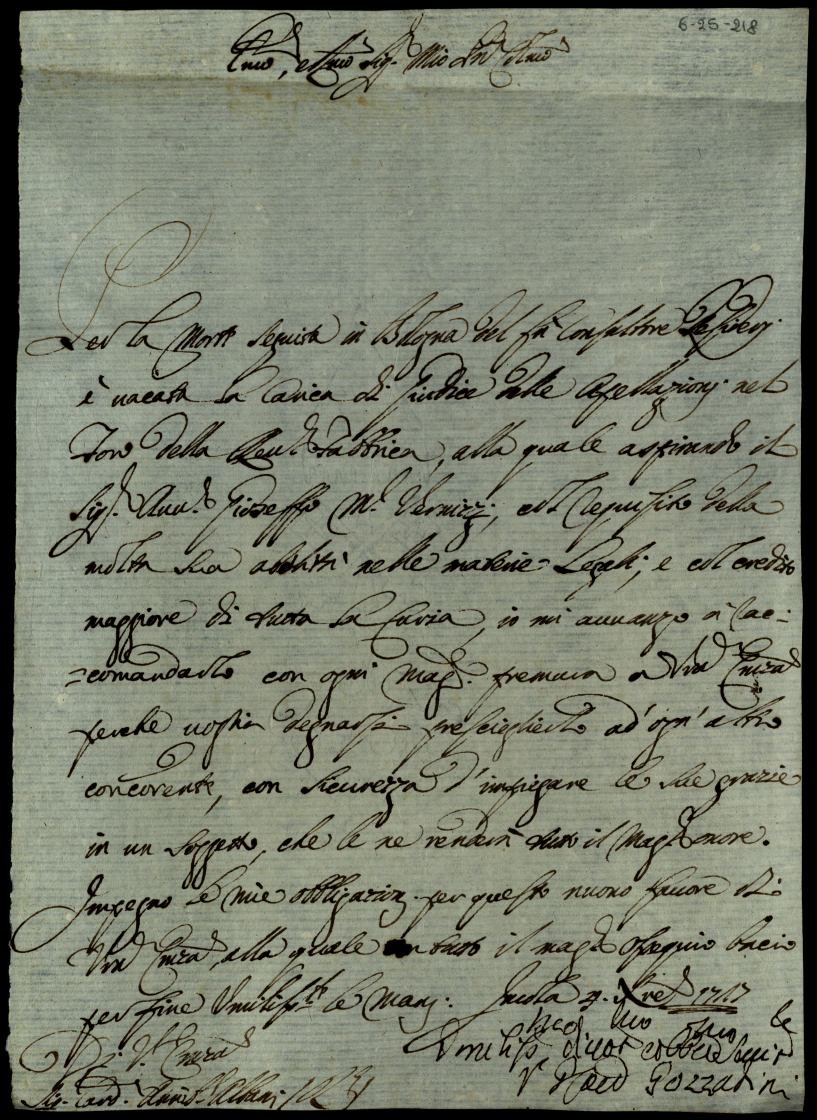 6-25-218
Emo, e Rmo Sig.r Mio Pne Colmo
Per la Morte seguita in Bologna del fù Consultore
è vacata la Carica di Giudice delle Apellazioni nel
Foro della Reu.da Fabbrica, alla quale aspirando il
Sig.r Auu.o Gioseffo M.a Vernizzi, col requisito della
molta sua abilità nelle materie Legali, e col credito
maggiore di tutta la Curia, io mi auuanzo à rac=
=comandarlo con ogni Mag.r premura a Vra Emza
perche voglia degnarsi presciglierlo ad'ogn'altro
concorente, con sicurezza d'impiegare le sue grazie
in un soggetto, che le ne renderà tutto il Mag.r onore.
Impegno le mie obbligazioni per questo nuovo fauore di
Vra Emza, alla quale con tutto il mag.r ossequio bacio
per fine Umilis.te le Mani. Imola 1717
Di V.ra Emza
Umiliss.o diuot.mo obblig
Sig.r Card. Annib.e Albani
Card Gozzadini